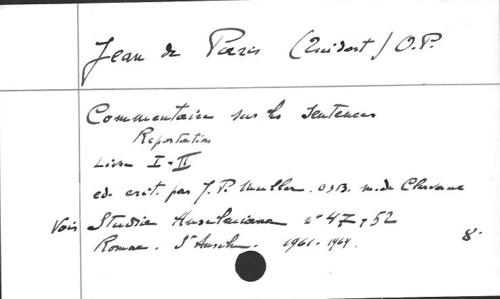 Jean de Paris (Quidort) O.P.
Commentaire sur les Sentences
Reportation
Livre I-II
ed. crit. par J.P. Muller. OSB. m. de Clervaux
Voir Studia Anselmiana n° 47, 52
Romae. St Anselme. 1961-1964. 8°